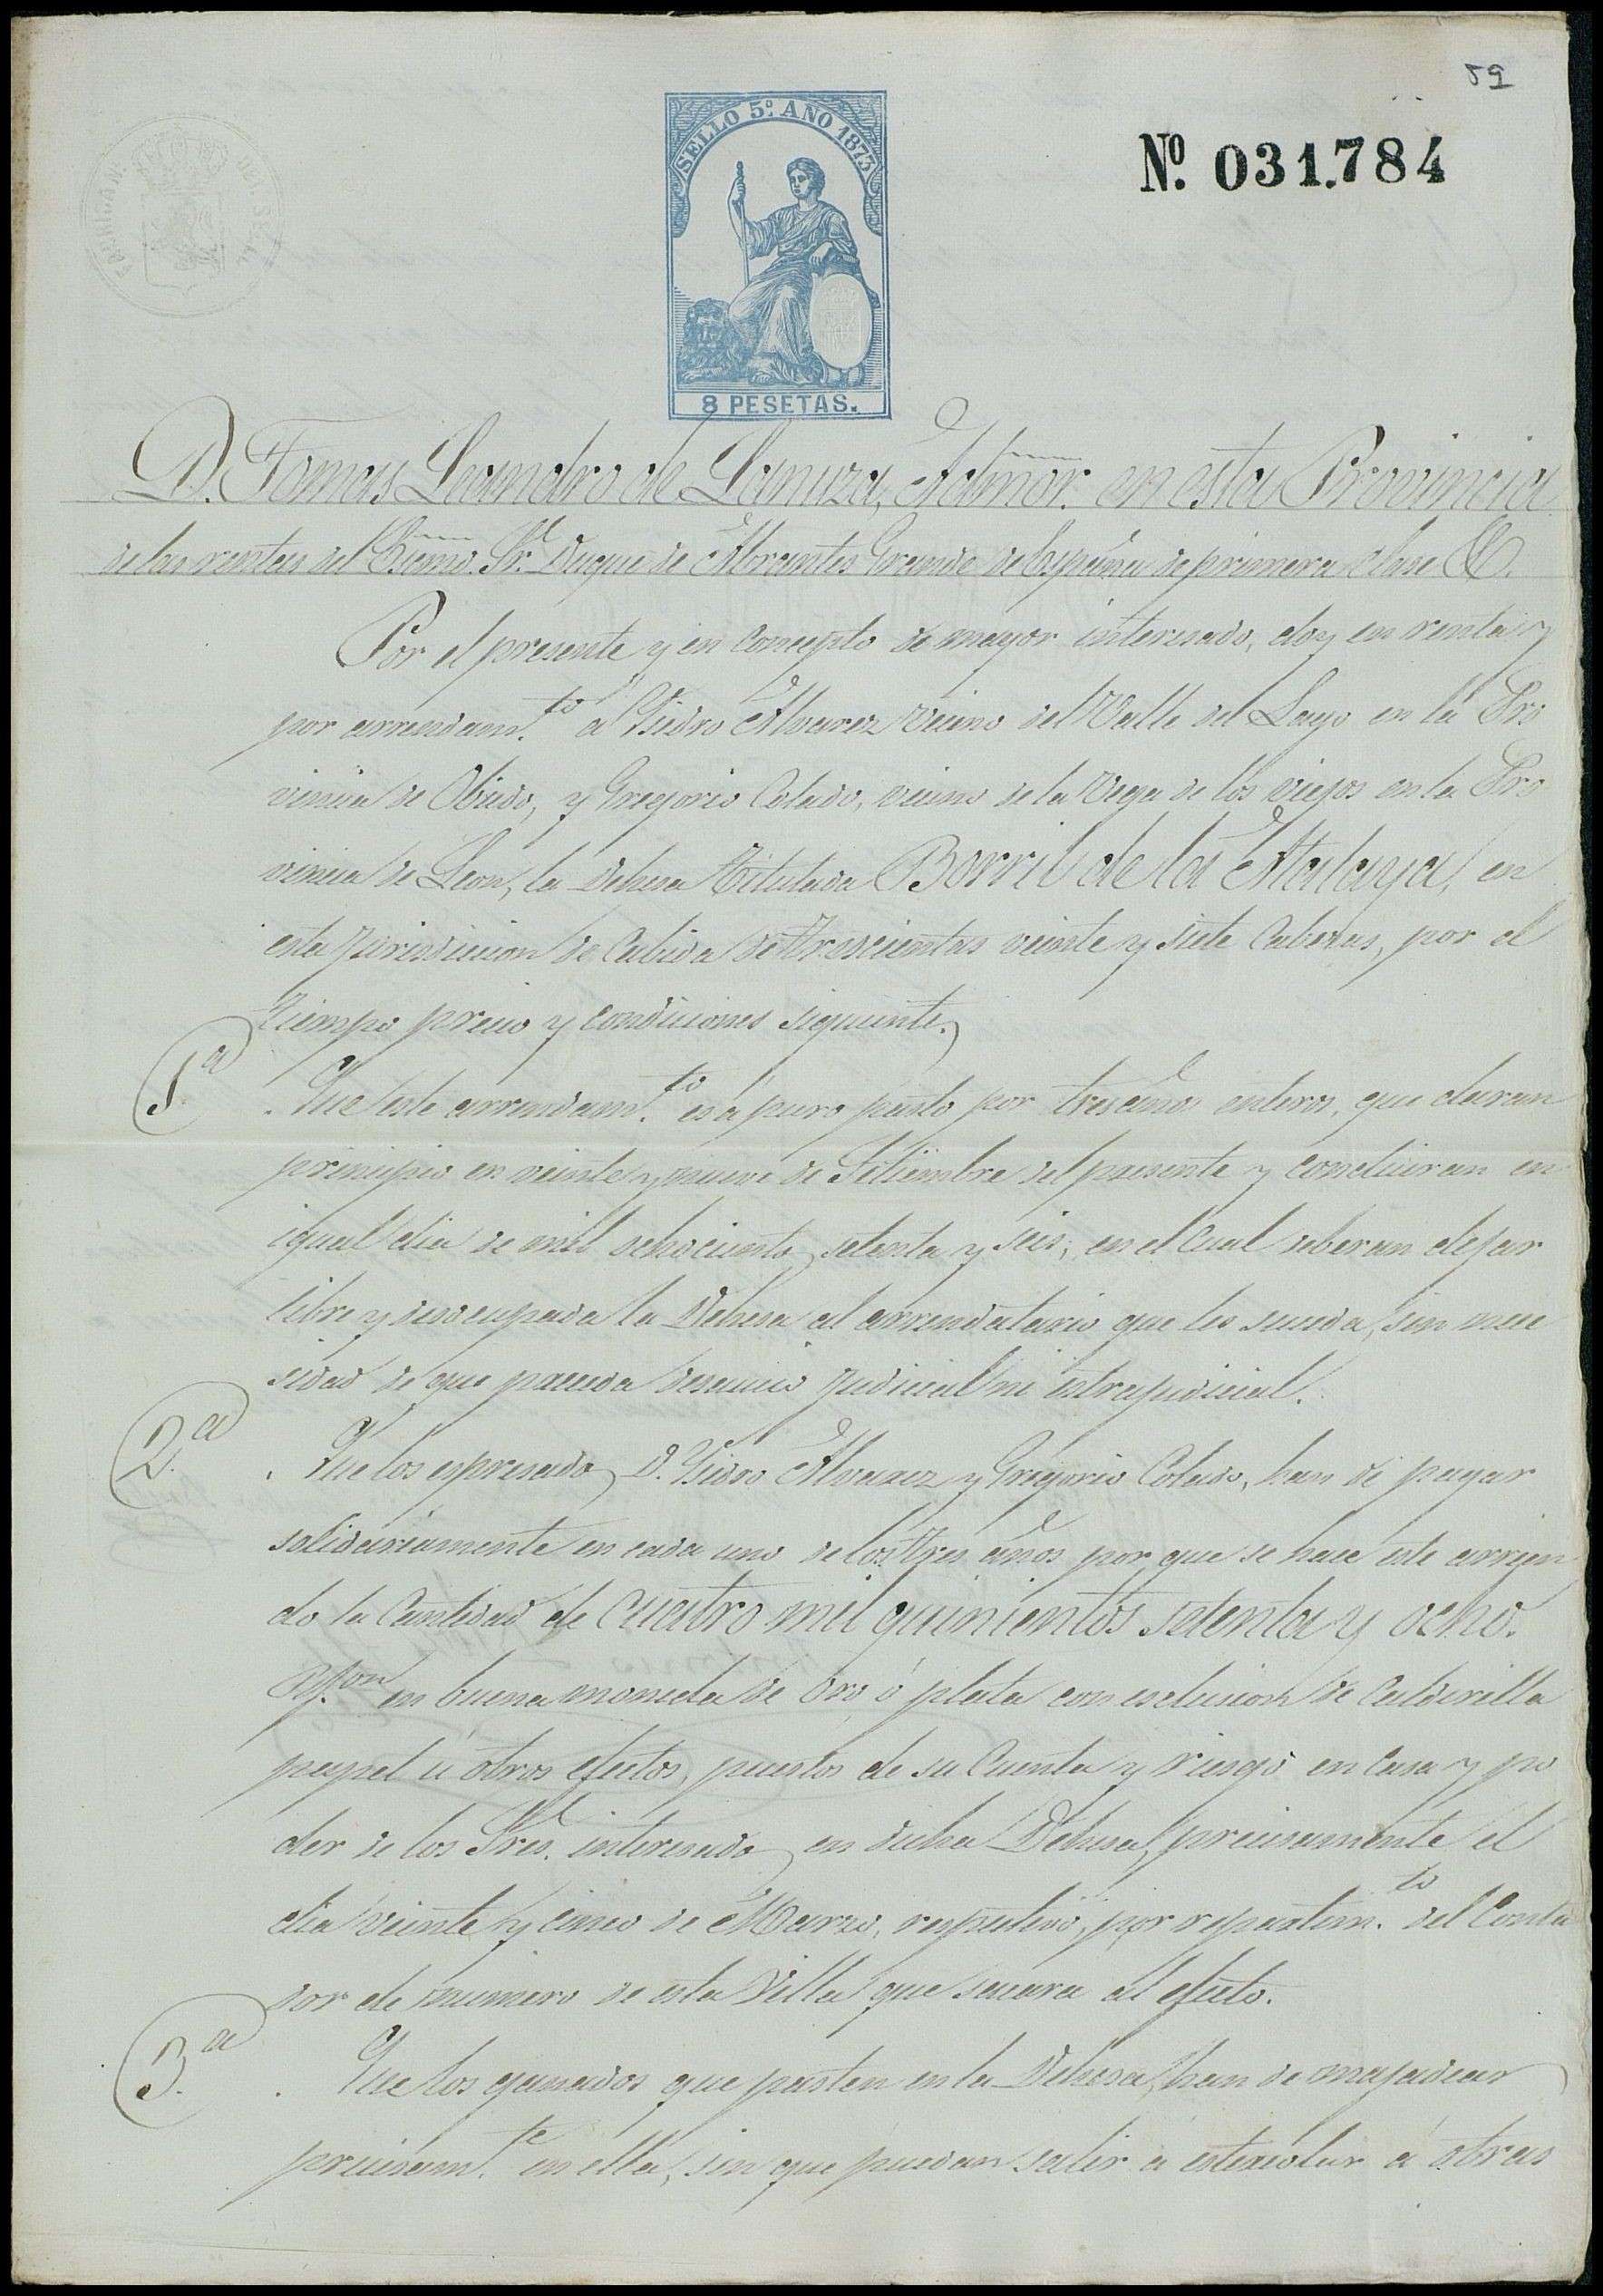 59
SELLO 5.º AÑO 1873
Nº. 031.784
8 PESETAS.
D. Tomas Leandro de Lanuza, Admor. en esta Provincia
de las rentas del Excmo. Sr. Duque de Abrantes Grande de España de primera clase &.
Por el presente y en concepto de mayor interesado, doy en renta y
por arrendam.to a Ysidro Alvarez vecino del Valle del Lago en la Pro
vincia de Obiedo, y Gregorio Colado, vecino de la Vega de los viejos en la Pro
vincia de Leon, la dehesa titulada Borril de la Atalaya, en
esta jurisdiccion de cabida de trescientas veinte y siete Cabezas, por el
tiempo precio y condiciones siguientes
1.a Que este arrendam.to es á puro pasto por tres años enteros, que daran
principio en veinte y nueve de Setiembre del presente y concluiran en
igual dia de mil ochocientos setenta y seis, en el cual deberan dejar
libre y desocupada la Dehesa al arrendatario que les suceda, sin nece
sidad de que preceda desaucio judicial ni estrajudicial.
2.a Que los espresados D. Ysidro Alvarez y Gregorio Colado, han de pagar
solidariamente en cada uno de los tres años por que se hace este arrien
do la Cantidad de cuatro mil quinientos setenta y ocho.
Rs. von en buena moneda de oro ó plata con esclusion de Calderilla
papel ú otros efectos, puestos de su Cuenta y riesgo en Casa y po
der de los Sres. interesados en dicha Dehesa, precisamente el
dia veinte y cinco de Marzo, respectivo, por repartim.to del Conta
dor de numero de esta Villa que sacara al efecto.
3.a Que los ganados que pasten en la Dehesa, han de majadear
precisam.te en ella, sin que puedan salir á estercolar á otras